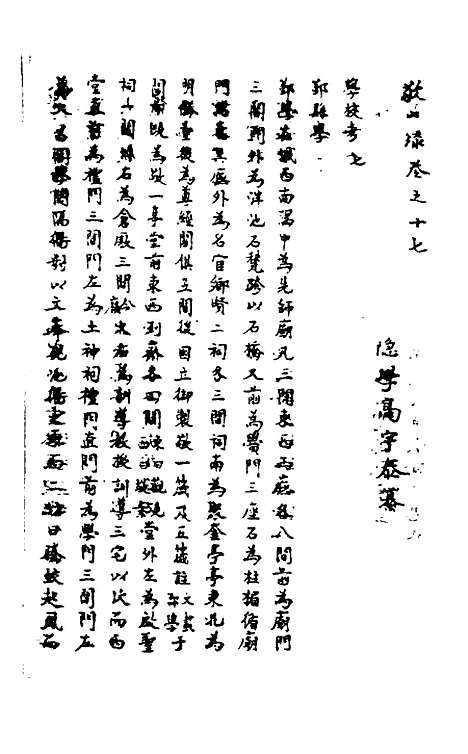 敬止录卷之十七
隐學高宇泰纂
學校考七
鄞縣學
鄞學在城西南隅中為先師廟凡三間東西兩廡各八間前為廟門
三間門外為泮池石甃跨以石橋又前為賈門三座石為柱楣循廟
門東 其廡外為名宦鄉賢二祠各三間祠南為聚奎亭亭東北為
明倫堂後為尊經閣俱五間後因立御製敬一箴及五箴註 于
閣前 為敬一亭堂前東西列齋各四間 堂外左為啟聖
祠十間 右為倉廒三間 左為訓導教授訓導三宅以次而西
堂直前為禮門三間門左為土神祠禮門直門前為學門三間門左
隔 對以文 池 之 西 曰騰蛟起鳳而